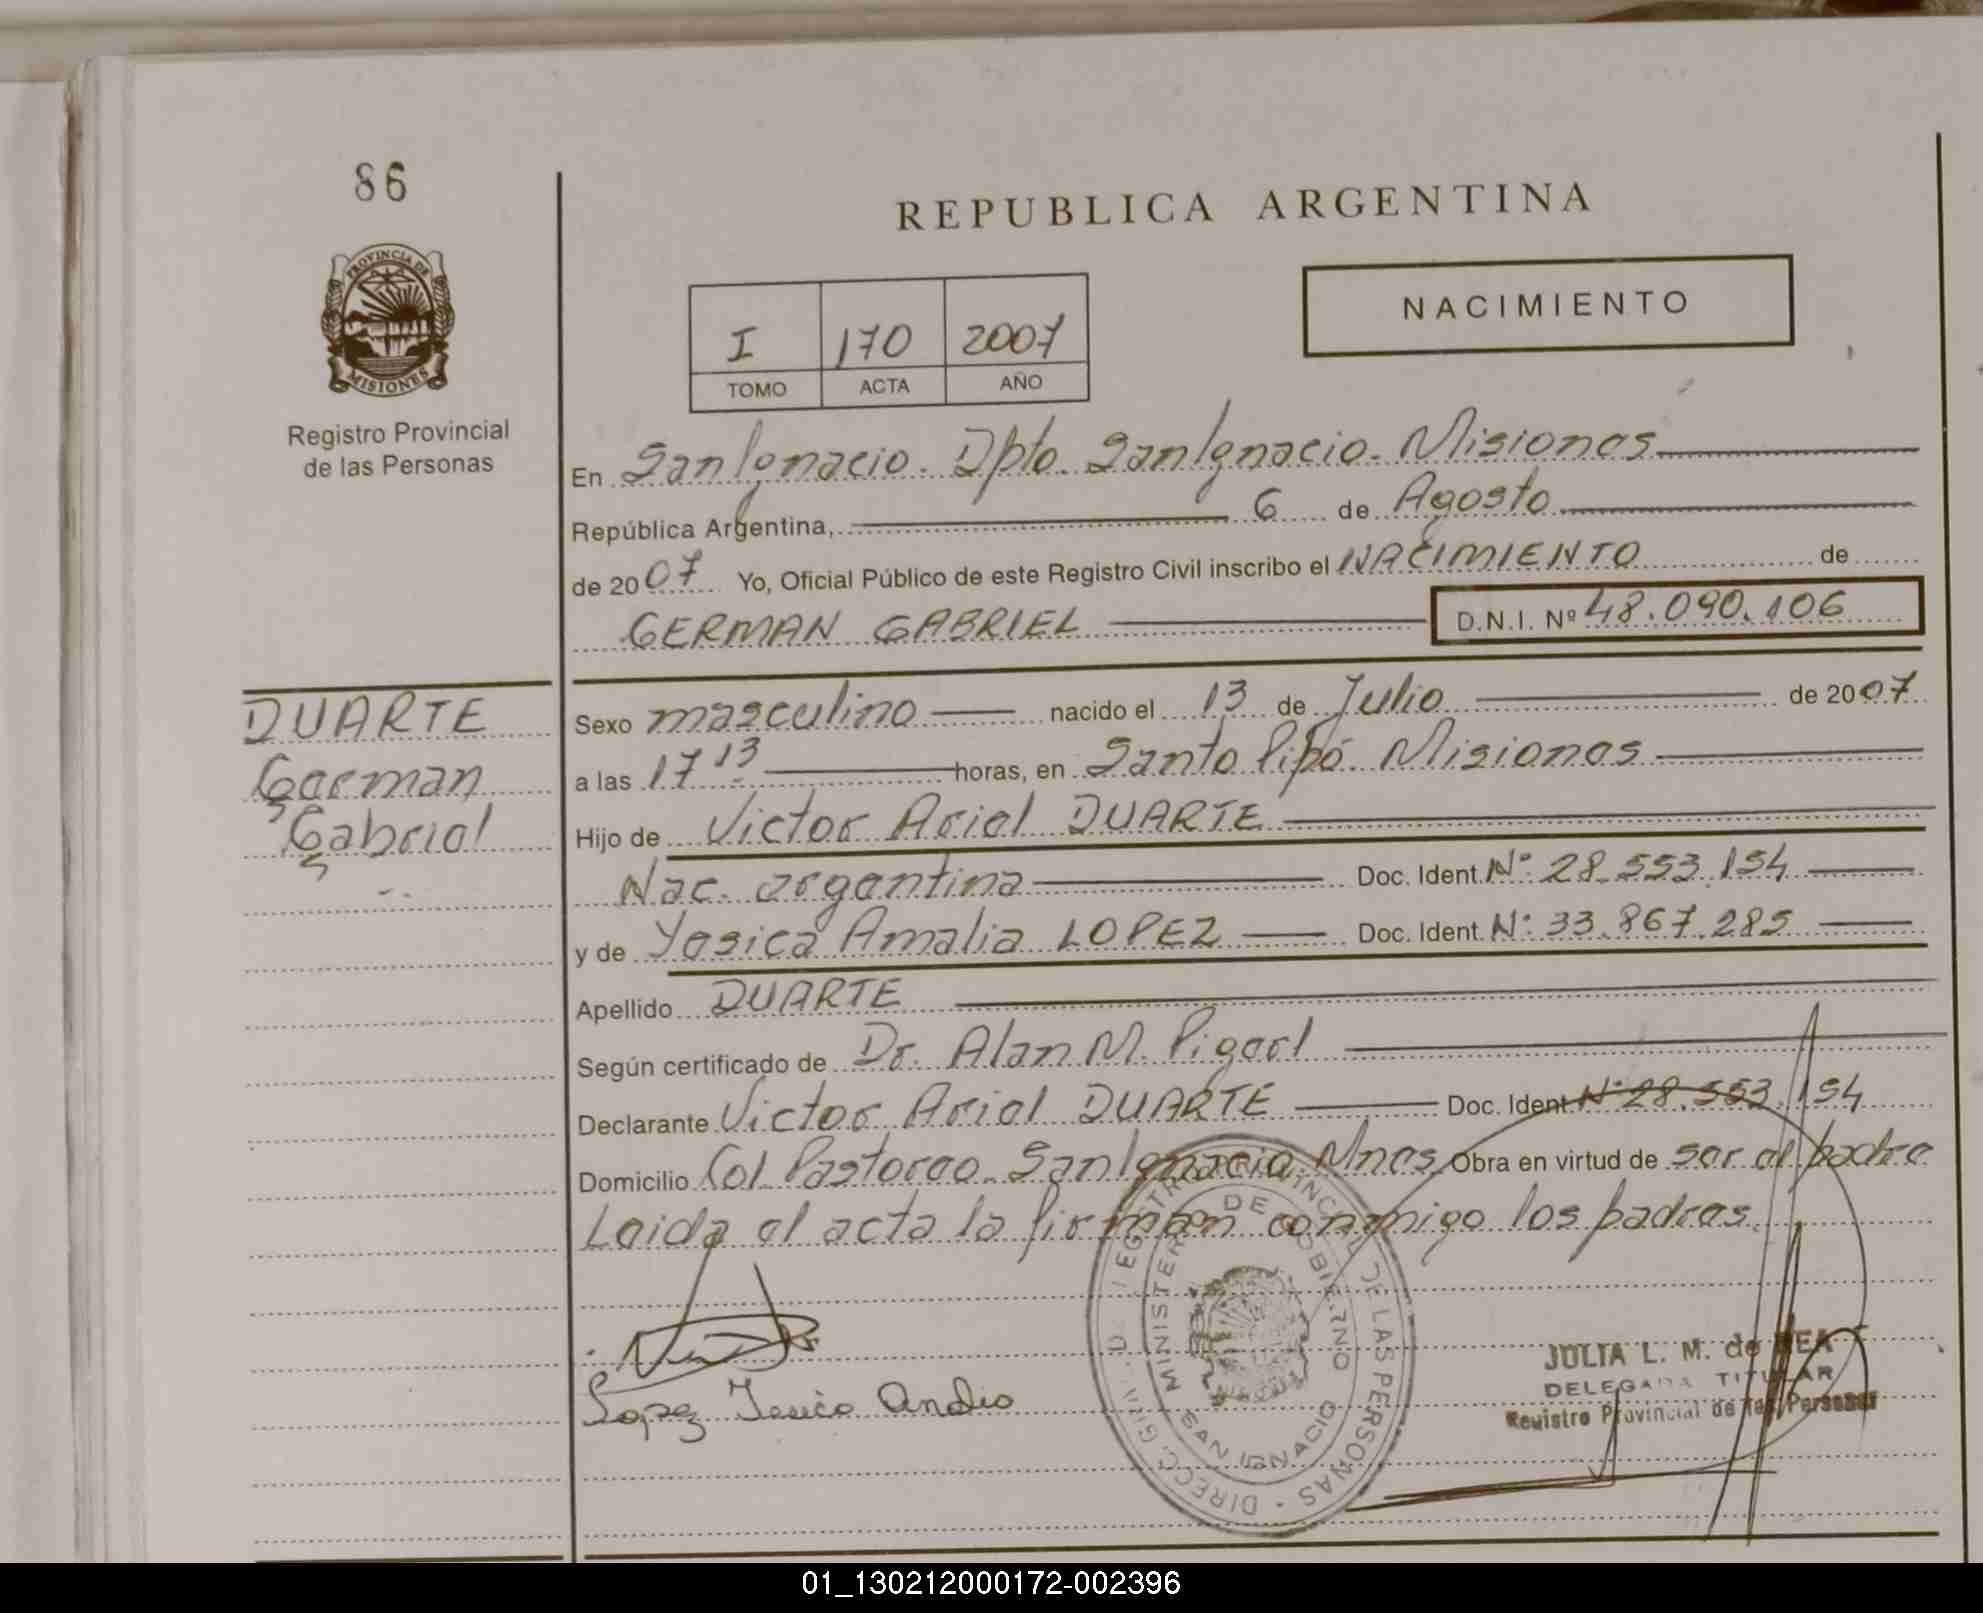 86
PROVINCIA DE
MISIONES
Registro Provincial
de las Personas
REPUBLICA ARGENTINA
I 170 2007
TOMO ACTA AÑO
NACIMIENTO
En San Ignacio. Dpto. San Ignacio. Misiones
República Argentina, 6 de Agosto
de 2007 Yo, Oficial Público de este Registro Civil inscribo el NACIMIENTO de
GERMAN GABRIEL D.N.I. Nº 48.090.106
DUARTE
German
Gabriel
Sexo masculino nacido el 13 de Julio de 2007
a las 17 13 horas, en Santo Pipó. Misiones
Hijo de Victor Ariel DUARTE
Nac. argentina Doc. Ident. Nº 28.553.154
y de Yesica Amalia LOPEZ Doc. Ident. Nº 33.867.285
Apellido DUARTE
Según certificado de Dr. Alan M. Pigerl
Declarante Victor Ariel DUARTE Doc. Ident. Nº 28.553.154
Domicilio Col. Pastoreo. San Ignacio. Mnes. Obra en virtud de ser el padre
Leida el acta la firman conmigo los padres.
Lopez
REGISTRO PROVINCIAL DE LAS PERSONAS
MINISTERIO DE GOBIERNO
SAN IGNACIO
JULIA L. M. de REA
DELEGADA TITULAR
Registro Provincial de las Personas
01_130212000172-002396